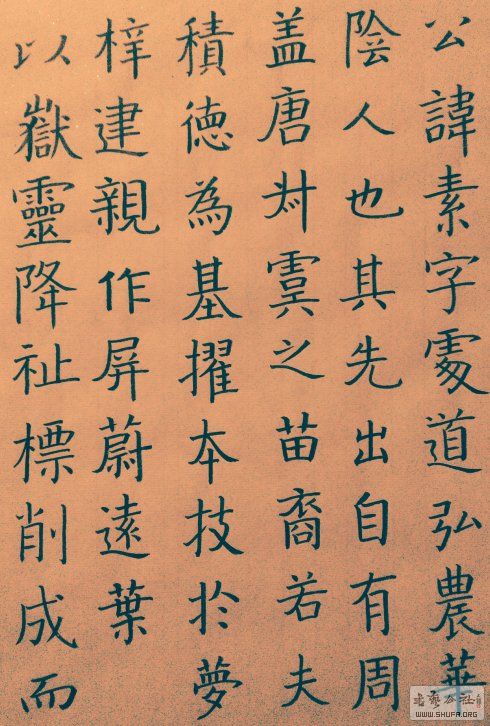 公諱素字處道弘農華
陰人也其先出自有周
盖唐叔虞之苗裔若夫
積德為基擢夲技於夢
梓建親作屏蔚遠葉
以嶽靈降祉標削成而
書藝公社
WWW.SHUFA.ORG